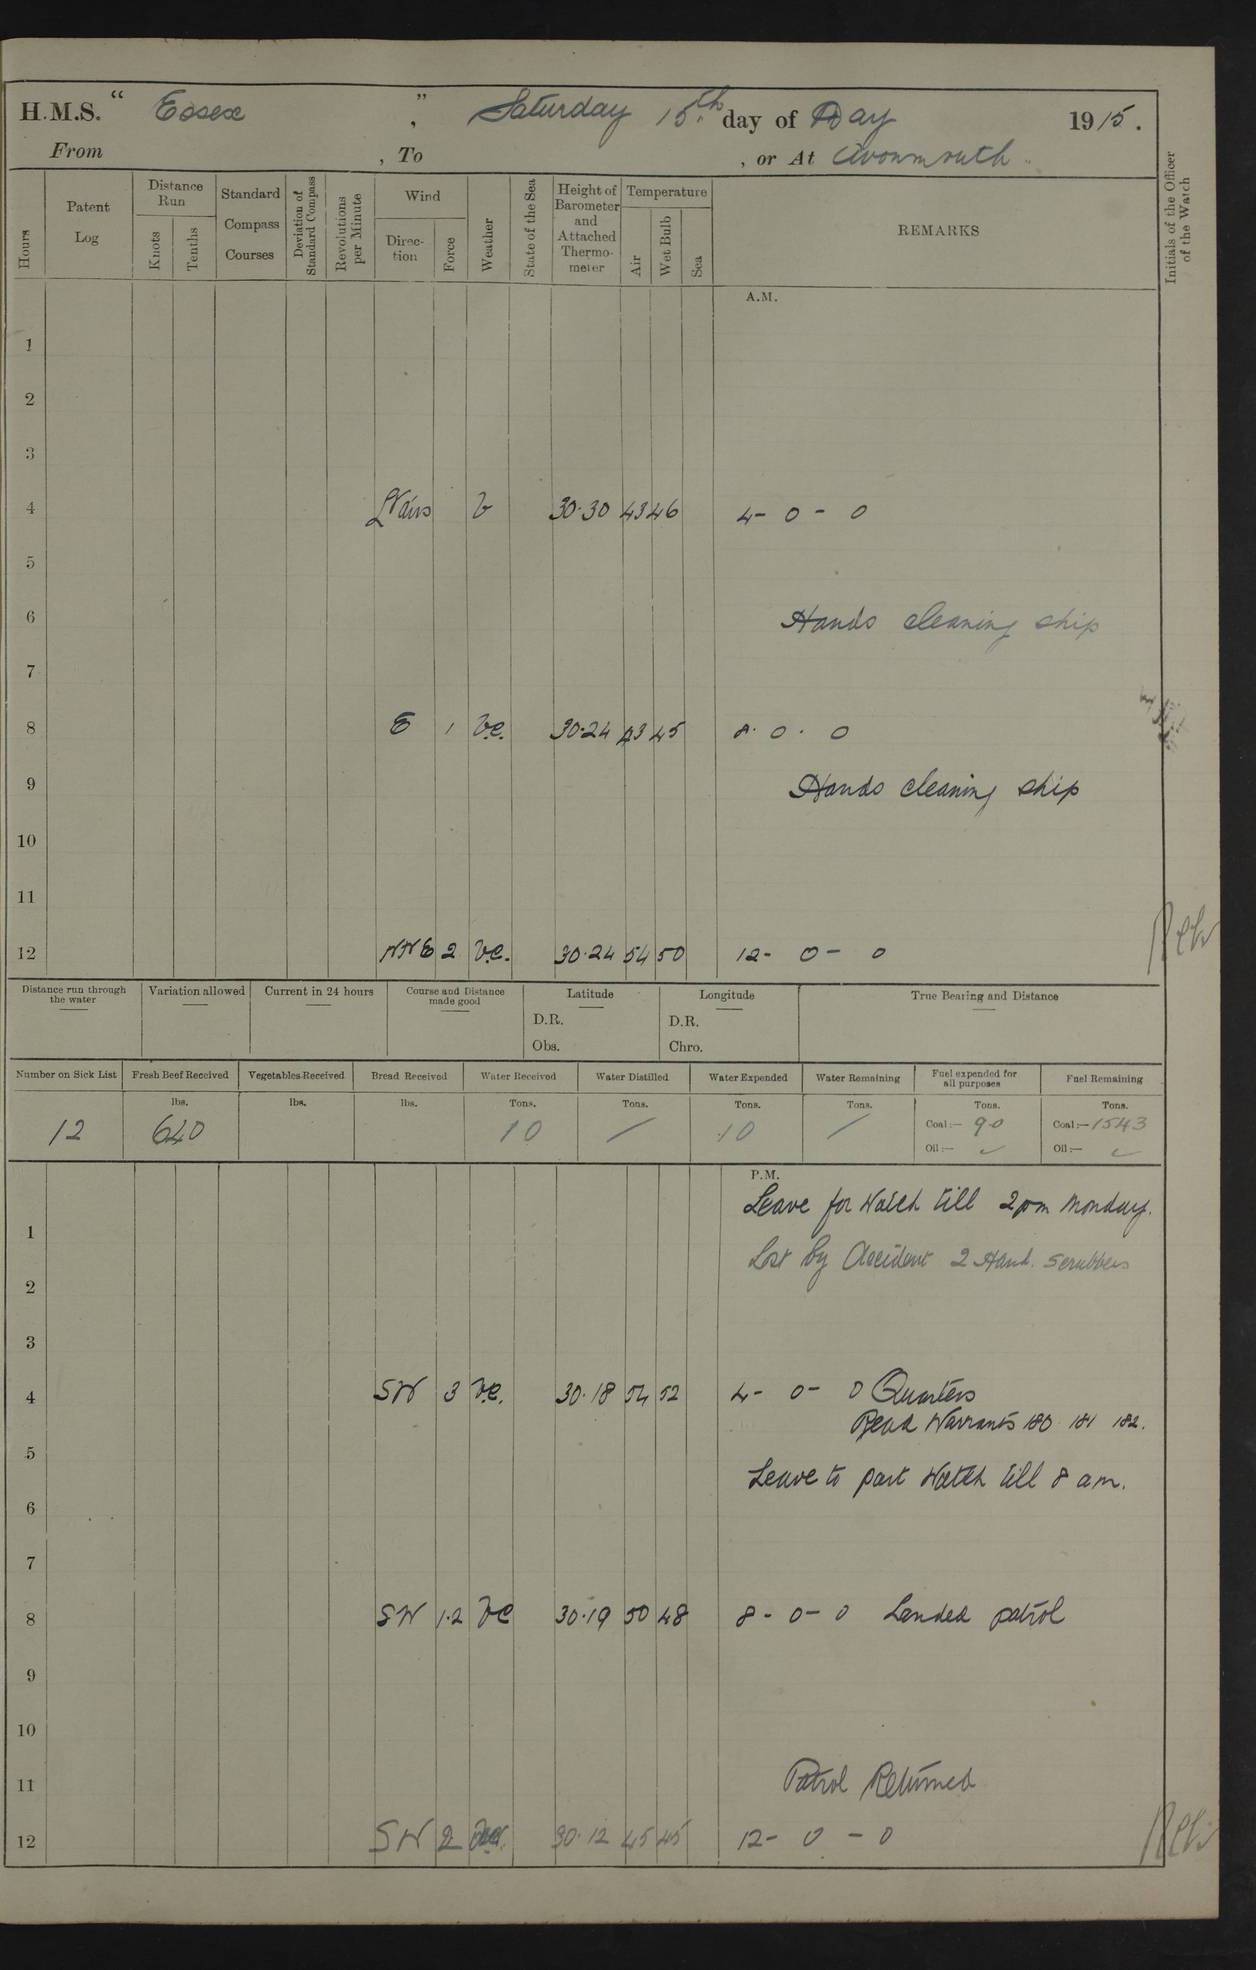 H.M.S. “ Essex ” , Saturday 15th day of May 1915.
From , To , or At Avonmouth
Hours
Patent Log
Distance Run
Knots
Tenths
Standard Compass Courses
Deviation of Standard Compass
Revolutions per Minute
Wind
Direction
Force
Weather
State of the Sea
Height of Barometer and Attached Thermometer
Temperature
Air
Wet Bulb
Sea
REMARKS
Initials of the Officer of the Watch
A.M.
1
2
3
4 Lt airs b 30.30 43 46 4 - 0 - 0
5
6 Hands cleaning ship
7
8 E 1 b.c. 30.24 43 45 8 . 0 . 0
9 Hands cleaning ship
10
11
12 NNE 2 b.c. 30.24 54 50 12 - 0 - 0
Distance run through the water
Variation allowed
Current in 24 hours
Course and Distance made good
Latitude
D.R.
Obs.
Longitude
D.R.
Chro.
True Bearing and Distance
Number on Sick List Fresh Beef Received Vegetables Received Bread Received Water Received Water Distilled Water Expended Water Remaining Fuel expended for all purposes Fuel Remaining
lbs. lbs. lbs. Tons. Tons. Tons. Tons. Tons. Tons.
12 640 10 / 10 / Coal:— 90 Coal:— 1543
Oil:— ✓ Oil:— ✓
P.M.
Leave for Watch till 2pm Monday.
1
Lost by Accident 2 Hand. Scrubbers
2
3
4 SW 3 b.c. 30.18 54 52 4 - 0 - 0 Quarters
Read Warrants 180 181 182.
5
Leave to part Watch till 8 am.
6
7
8 SW 1.2 bc 30.19 50 48 8 - 0 - 0 Landed patrol
9
10
11 Patrol Returned
12 SW 2 30.12 45 45 12 - 0 - 0